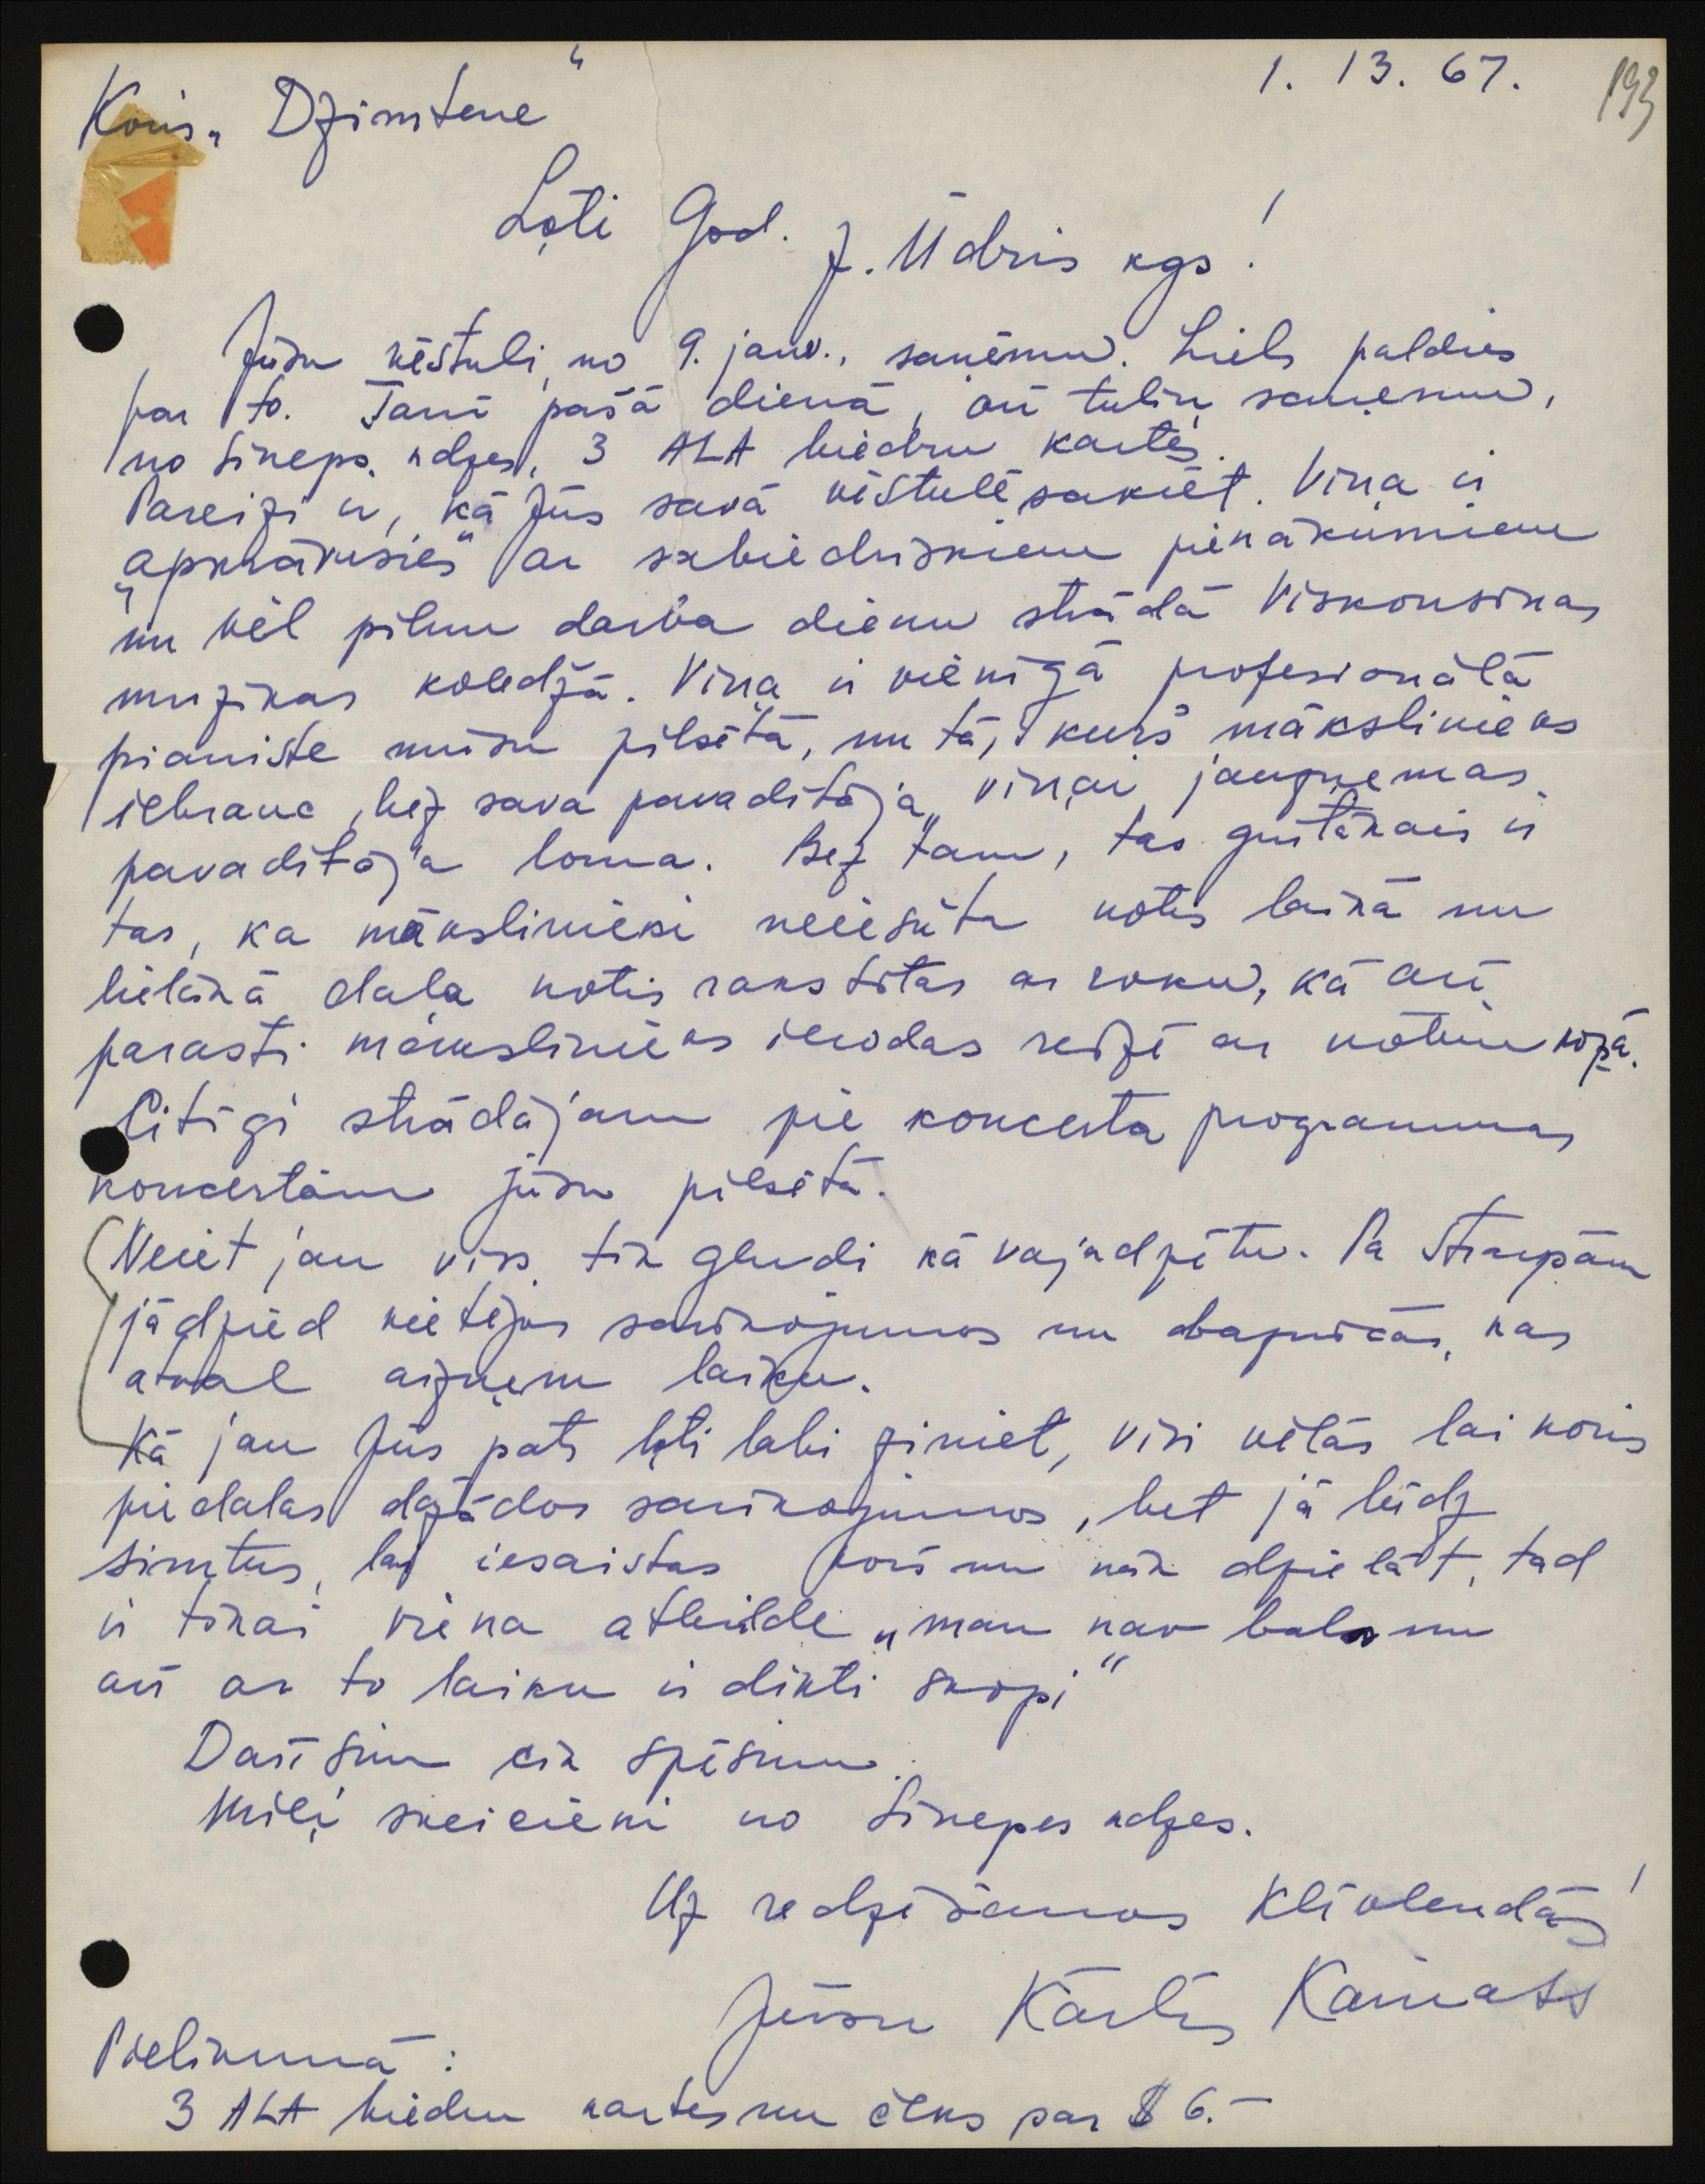 1. 13. 67.
193
Koris „Dzimtene"
Ļoti God. J. Ūdris kgs!
Jūsu vēstuli, no 9. janv., saņēmu. Liels paldies
par to. Tanī pašā dienā, arī tuliņ saņēmu,
no Sineps. kdzes, 3 ALA biedru kartēs.
Pareizi ir, kā Jūs savā vēstulē sakiet. Viņa ir
„apkrāvusies" ar sabiedriskiem pienākumiem
un vēl pilnu darba dienu strādā Viskonsinas
muzikas koledžā. Viņa ir vienīgā profesionālā
pianiste mūsu pilsētā, un tā, kurš mākslinieks
iebrauc, bez sava pavadītāja, viņai jauzņemas
pavadītāja loma. Bez tam, tas grūtākais ir
tas, ka mākslinieki neiesūta notis laikā un
lielākā daļa notis rakstītas ar roku, kā arī
parasti mākslinieks ierodas reizē ar notīm kopā.
Cītīgi strādājam pie koncerta programmas
koncertam jūsu pilsētā.
Neiet jau viss tik gludi kā vajadzētu. Pa starpām
jādzied vietējos sarīkojumos un baznīcās, kas
atkal aizņem laiku.
Kā jau Jūs pats ļoti labi ziniet, visi vēlās lai koris
piedalas dažādos sarīkojumos, bet jā lūdz
simtus, lai iesaistas korī un nāk dziedāt, tad
ir tikai viena atbilde „man nav balss un
arī ar to laiku ir dikti skopi"
Darīsim cik spēsim.
Mīļi sveicieni no Sinepes kdzes.
Uz redzēšanos Klīvlendā!
Jūsu Kārlis
Pielikumā:
3 ALA biedru kartes un čeks par $ 6.-